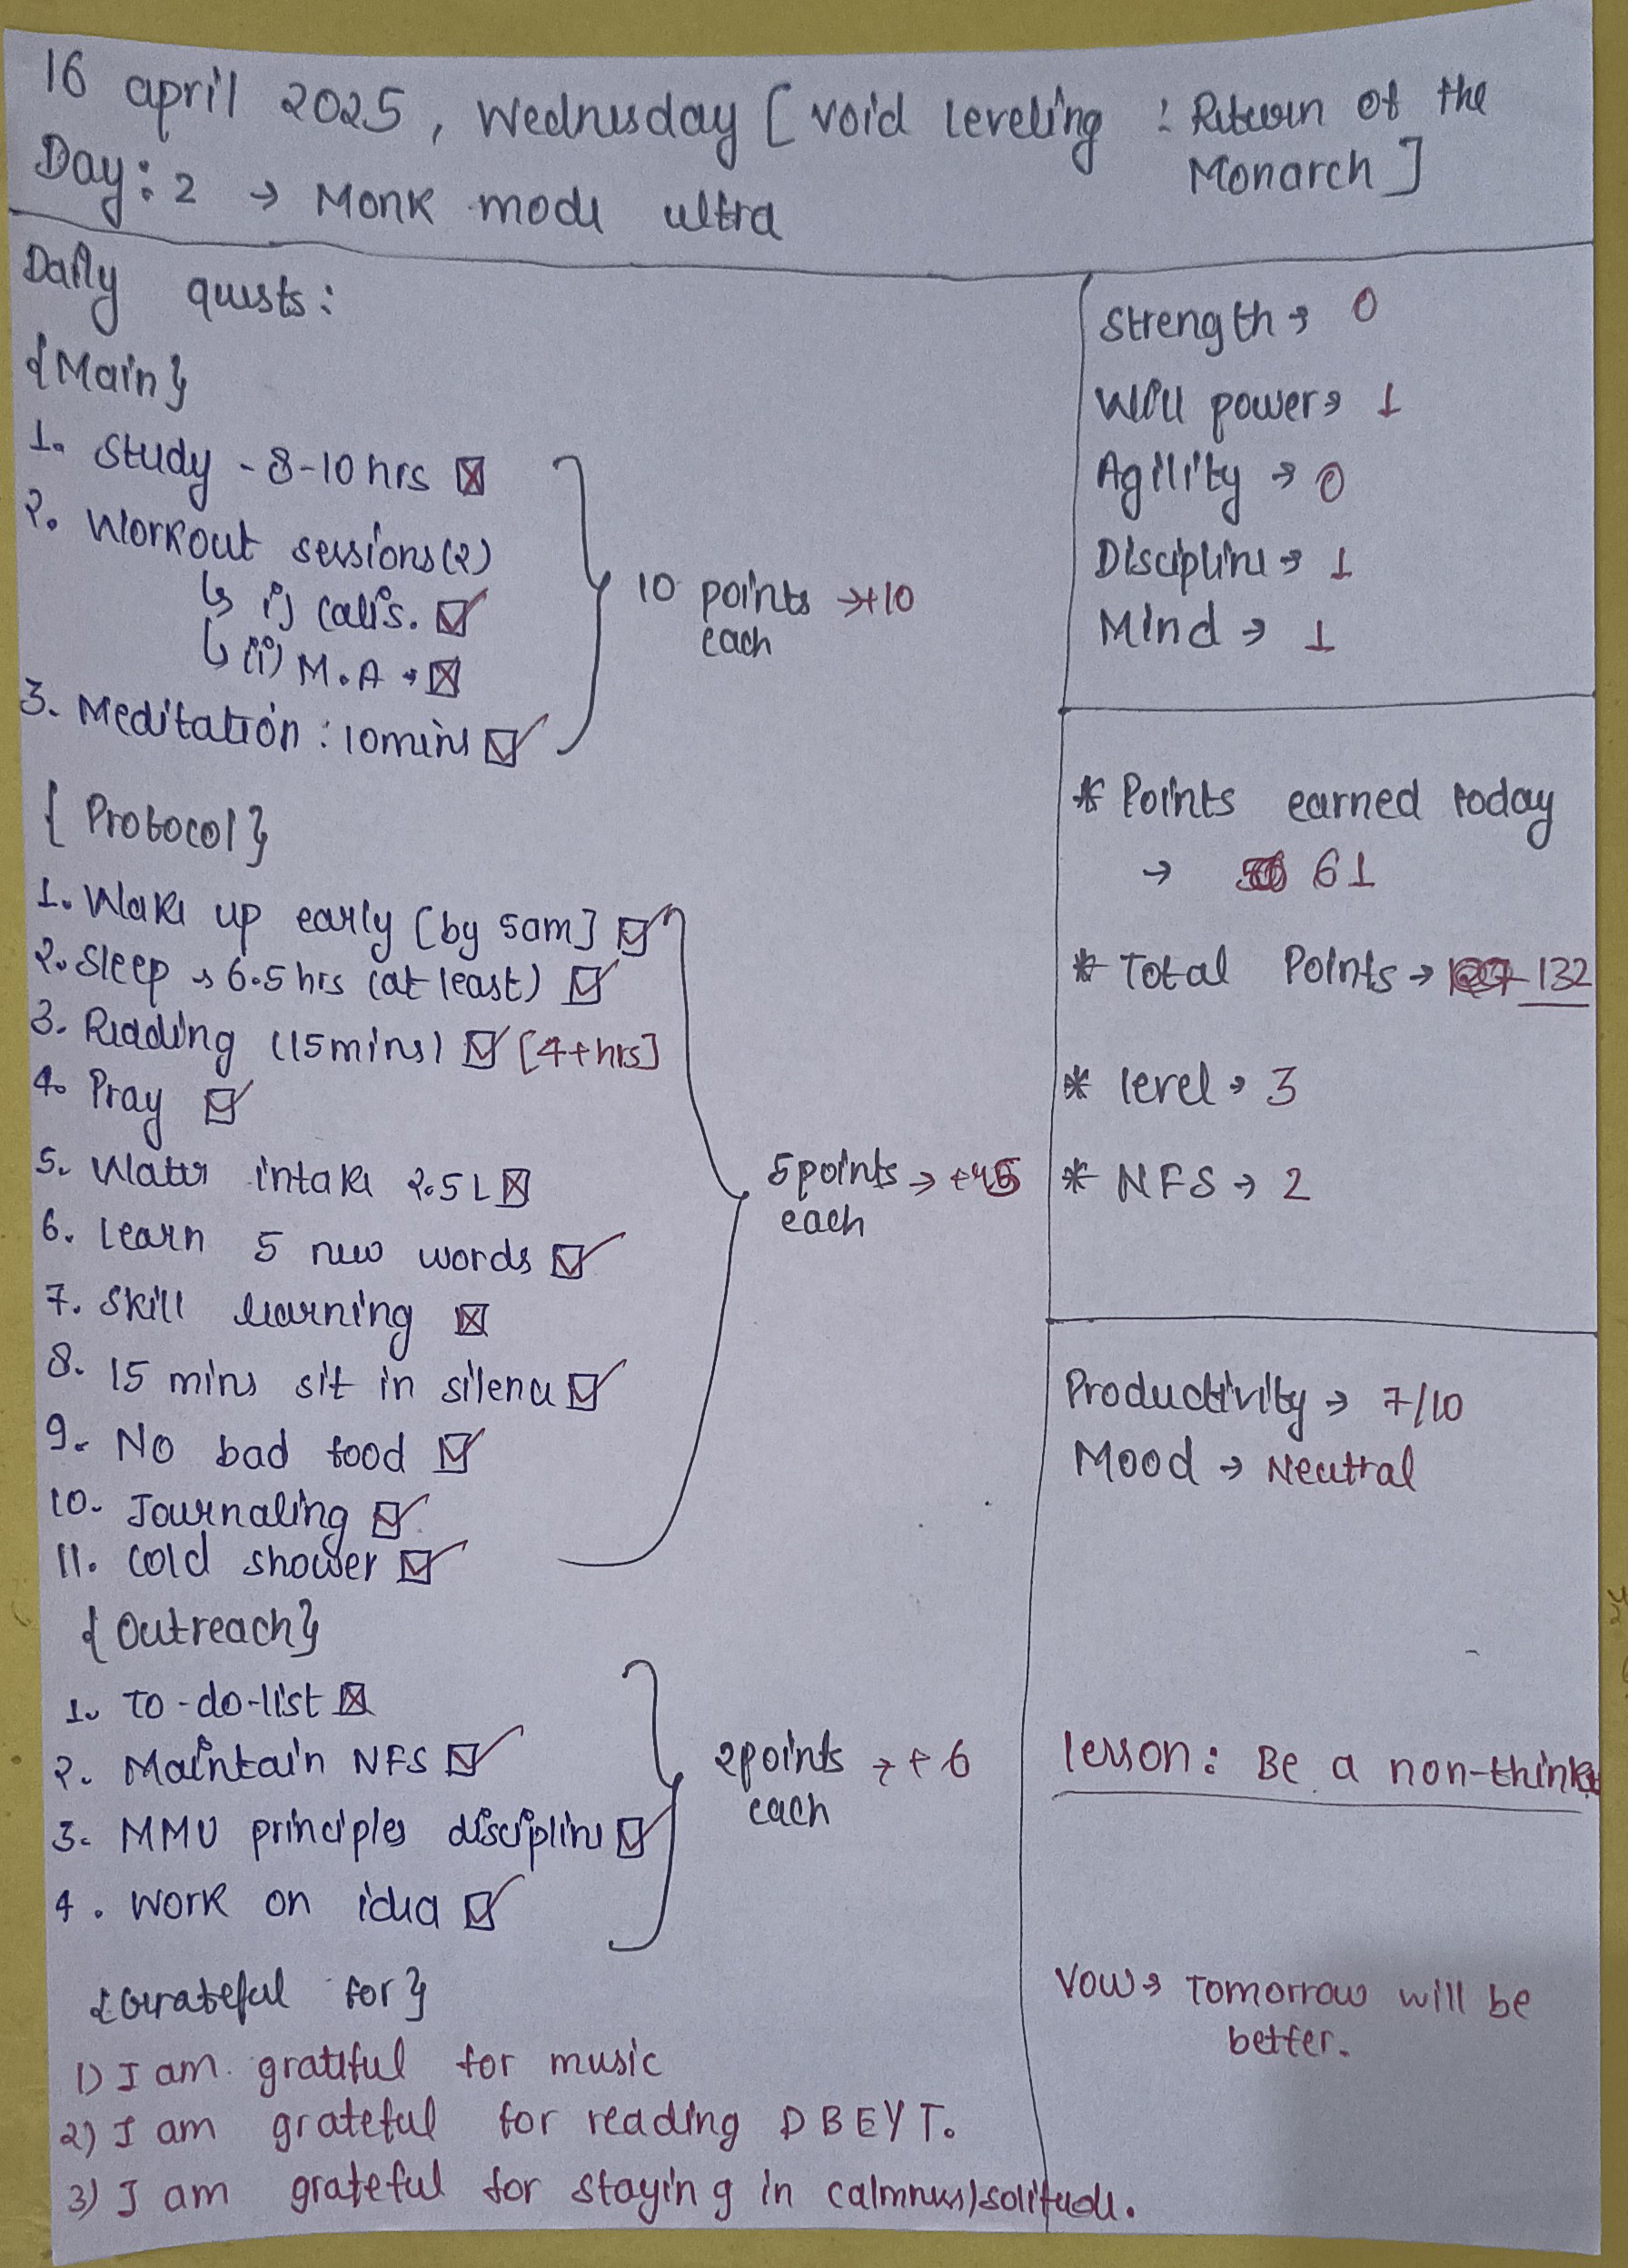 16 april 2025, Wednesday [void leveling : Return of the
Monarch]
Day: 2 → Monk mode ultra
Daily quests:
{Main}
1. Study - 8-10 hrs ☒
2. Workout sessions(2)
↳ i) calis. ☑
↳ (ii) M.A → ☒
3. Meditation : 10mins ☑
10 points → +10
each
{Protocol}
1. Wake up early [by 5am] ☑
2. Sleep → 6.5 hrs (at least) ☑
3. Reading (15mins) ☑ [4+hrs]
4. Pray ☑
5. Water intake 2.5L ☒
6. learn 5 new words ☑
7. Skill learning ☒
8. 15 mins sit in silence ☑
9. No bad food ☑
10. Journaling ☑
11. cold shower ☑
5 points → +45
each
{Outreach}
1. To-do-list ☒
2. Maintain NFS ☑
3. MMU principles discipline ☑
4. Work on idea ☑
2 points → +6
each
{Grateful for}
1) I am grateful for music
2) I am grateful for reading DBEYT.
3) I am grateful for staying in calmness/solitude.
Strength → 0
Will power → 1
Agility → 0
Discipline → 1
Mind → 1
* Points earned today
→ 61
* Total Points → 132
* level → 3
* NFS → 2
Productivity → 7/10
Mood → Neutral
lesson: Be a non-thinker
Vow → Tomorrow will be
better.